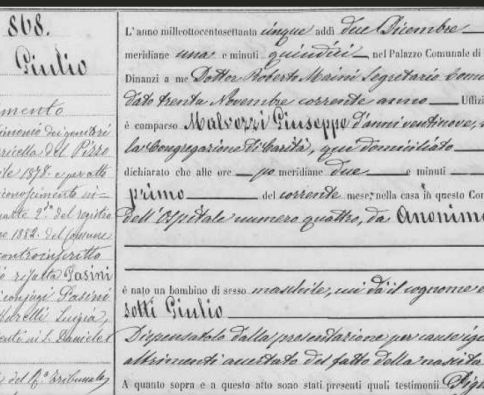 868.
Giulio
L'anno milleottocentosettanta cinque addì due Dicembre
meridiane una e minuti quindici nel Palazzo Comunale di
Dinanzi a me Dottor Roberto Maini Segretario
dato trenta Novembre corrente anno Uffizi
è comparso Malvezzi Giuseppe d'anni ventinove,
la Congregazione Di Carità, qui domiciliato
dichiarato che alle ore po meridiane due e minuti
primo del corrente mese, nella casa in questo Com
dell'Ospitale numero quattro, da Anonim
è nato un bambino di sesso mascolile, cui dà il cognome
sotti Giulio
Dispensatolo dalla presentazione per causa
altrimenti accertato del fatto della nascita
A quanto sopra e a questo atto sono stati presenti quali testimonii
timonio dei genitori
del Pizzo
1878 e per atto
riconoscimento
2.da del registro
1882. del comune
controinscritto
Pasini
coniugi Pasini
Luigia,
S. Daniele
del Tribunale